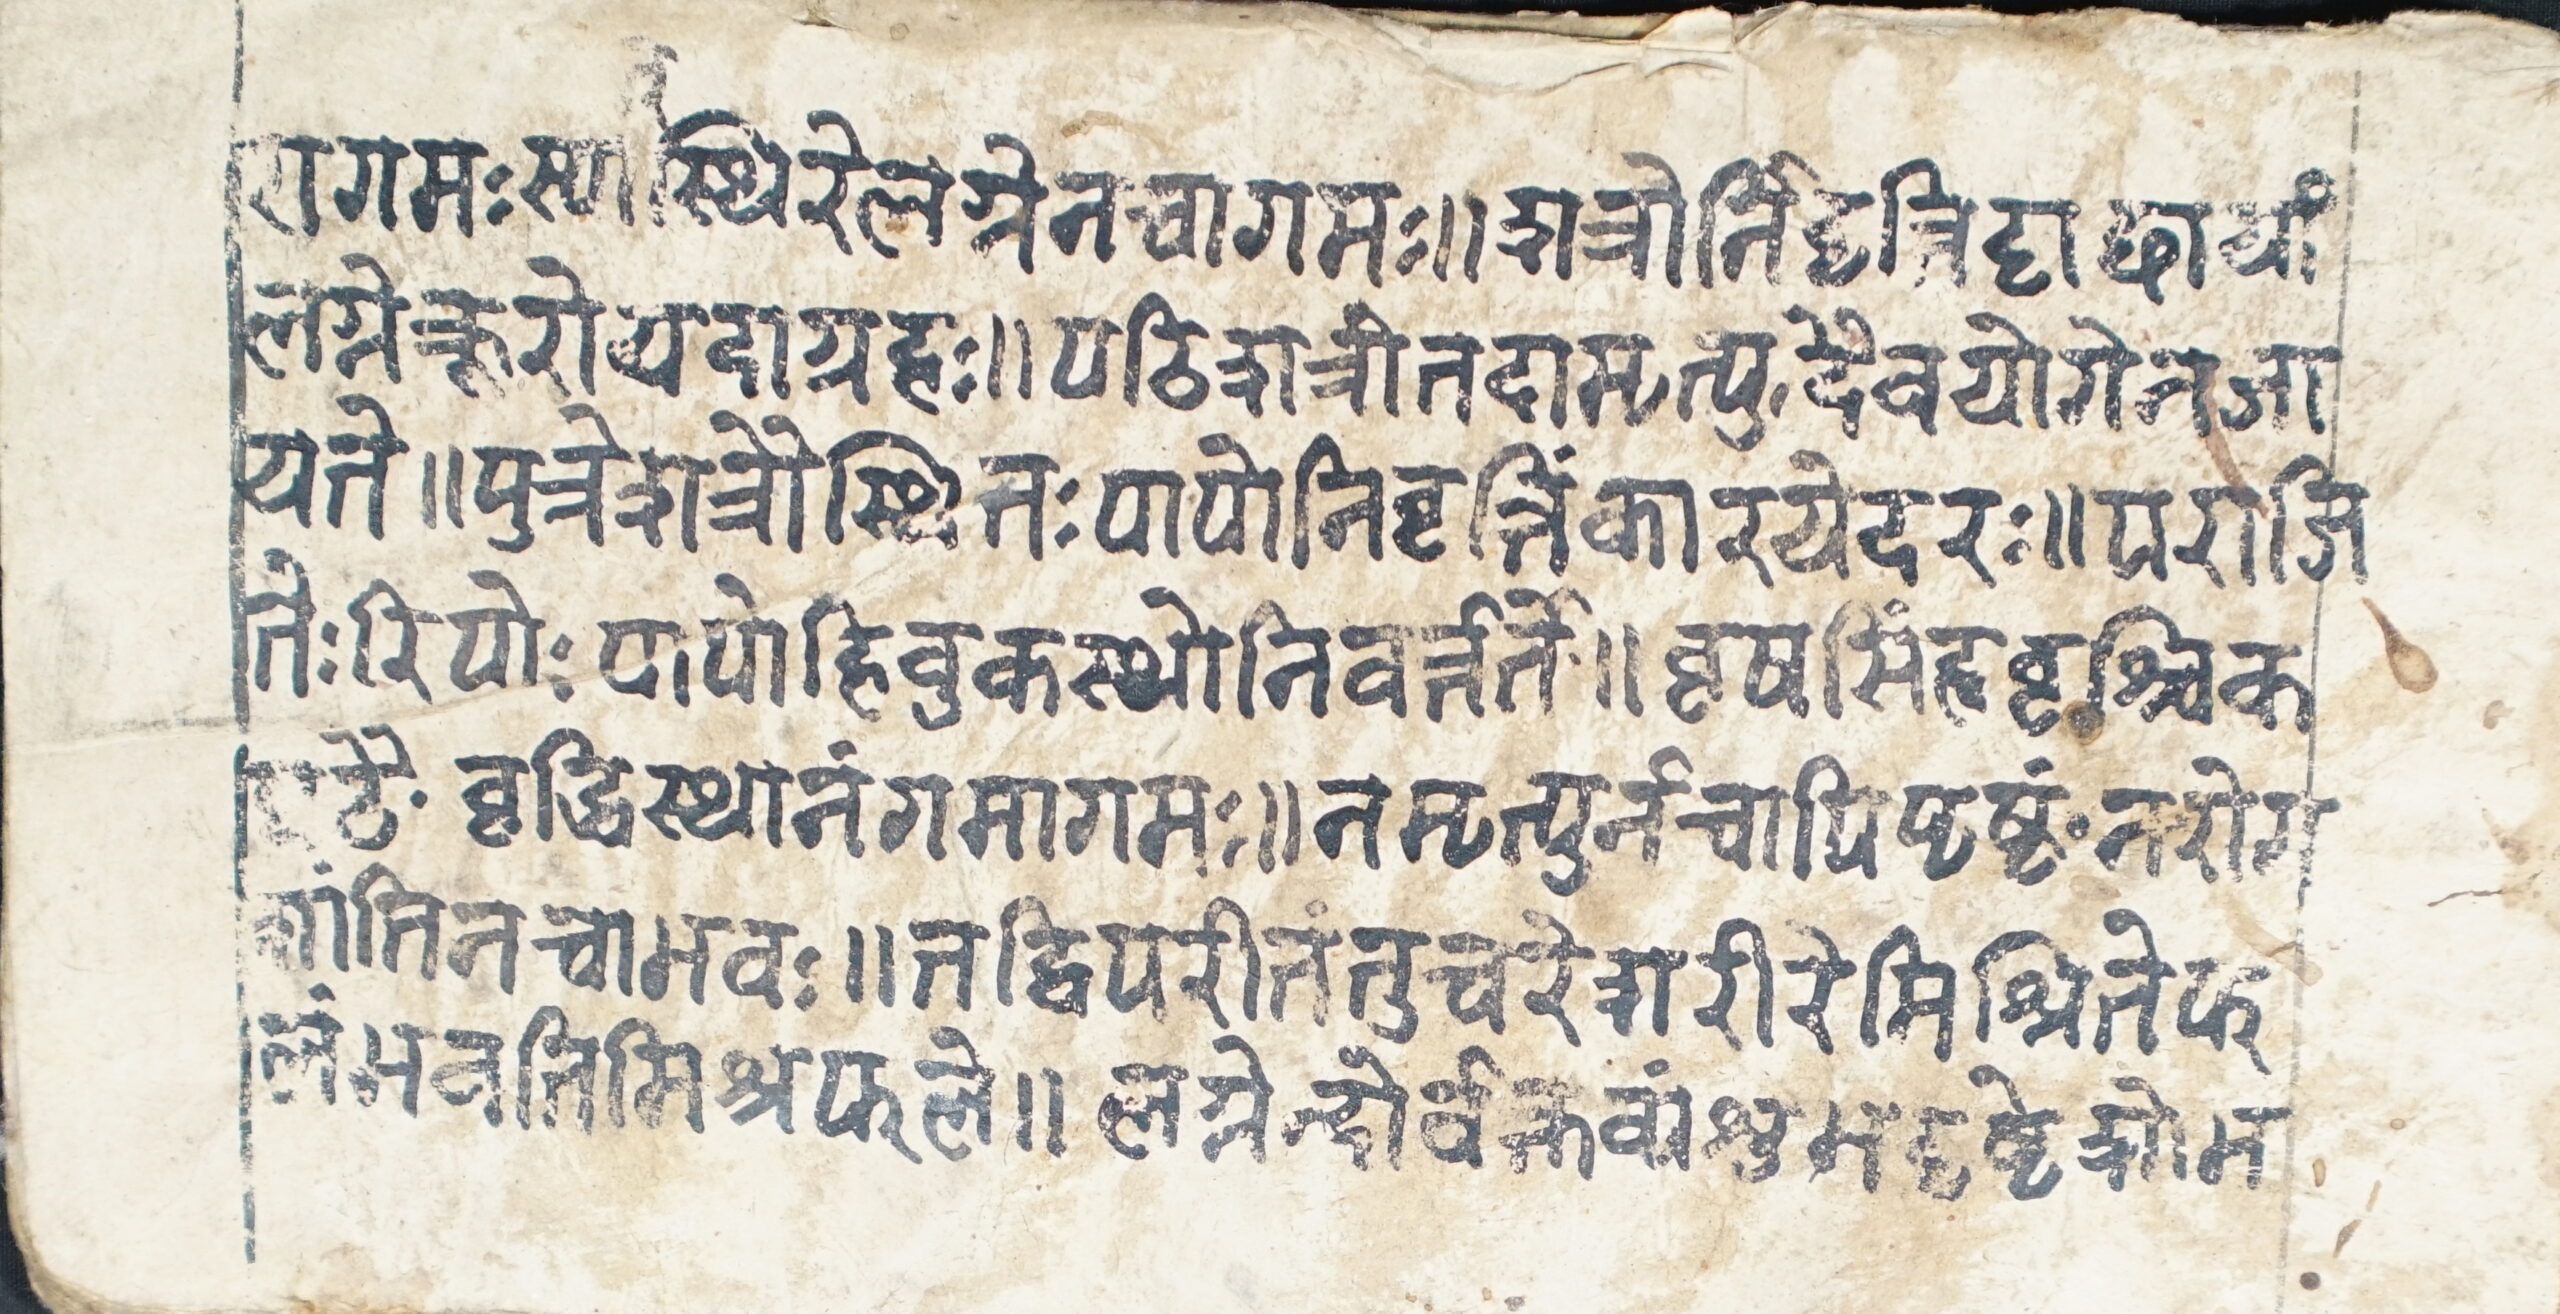 रागमः स्या स्थिरे लग्ने न चागमः॥ शत्रोर्निहत्रि
लग्ने क्रूरो यदा ग्रहः॥ पठि शत्री तदा मृत्यु दैवयोगेन जा
यते॥ पुत्रे शत्रौ स्थितः पापो निवृत्तिं कारयेदरः॥ पराजि
तैः रिपोः पापो हिवुकस्थो निवर्त्तते॥ वृष सिंह वृश्चिक
वृद्धिस्थानं गमागमः॥ न मृत्युर्न चापि नरोग
शांति न चाभवः॥ तद्विपरीतं तु चरे शरीरे मिश्रिते फ
लं भवति मिश्रफले॥ लग्नेन्दो